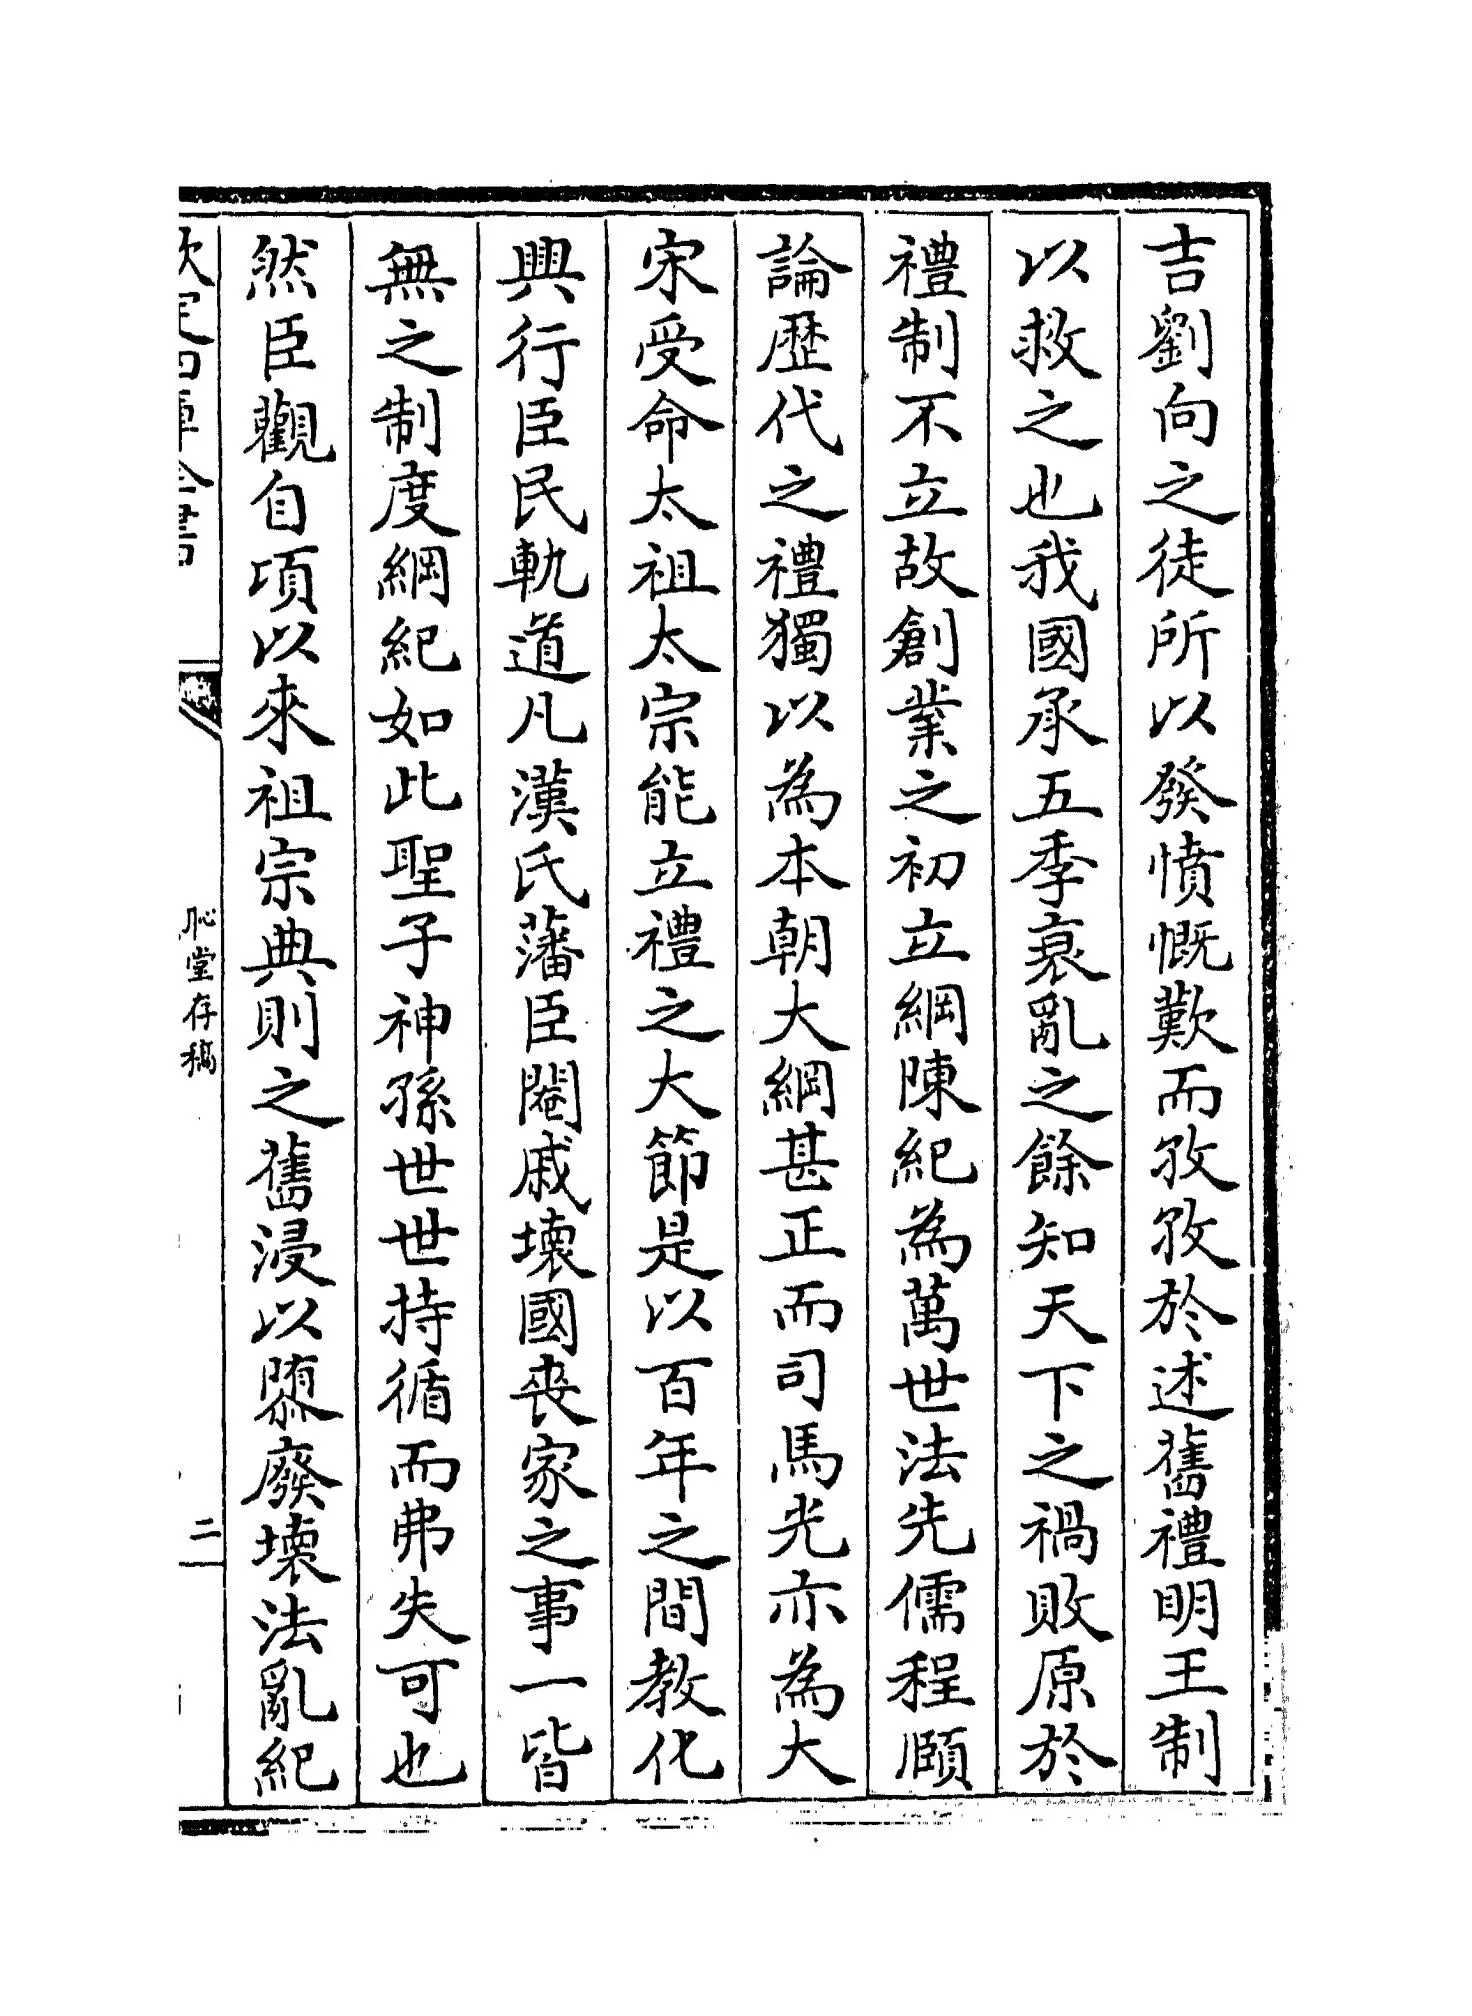 吉劉向之徒所以發憤慨歎而孜孜於述舊禮明王制
以救之也我國承五季衰亂之餘知天下之禍敗原於
禮制不立故創業之初立綱陳紀為萬世法先儒程頤
論歷代之禮獨以為本朝大綱甚正而司馬光亦為大
宋受命太祖太宗能立禮之大節是以百年之間教化
興行臣民軌道凡漢氏藩臣閹戚壞國喪家之事一皆
無之制度綱紀如此聖子神孫世世持循而弗失可也
然臣觀自項以來祖宗典則之舊浸以隳廢壞法亂紀
欽定四庫全書
恥堂存稿
二